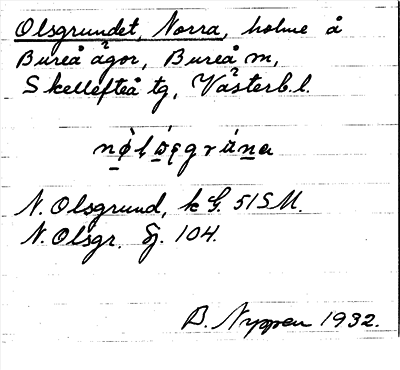 Olsgrundet, Norra, holme å
Bureå ägor, Bureå m,
Skellefteå tg, Västerb.l.
N. Olsgrund, k G. 51 SM.
N. Olsgr. Sj. 104.
B. Nyppen 1932.